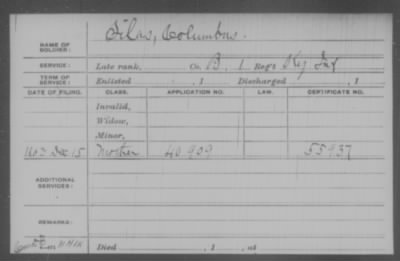 NAME OF SOLDIER: Silas, Columbus.
SERVICE: Late rank, Co. B, 1 Reg't Ky Inf
TERM OF SERVICE: Enlisted , 1 Discharged , 1
DATE OF FILING. CLASS. APPLICATION NO. LAW. CERTIFICATE NO.
Invalid,
Widow,
Minor,
1863 Dec 15 Mother 40.909 55937
ADDITIONAL SERVICES:
REMARKS:
Died , 1 , at